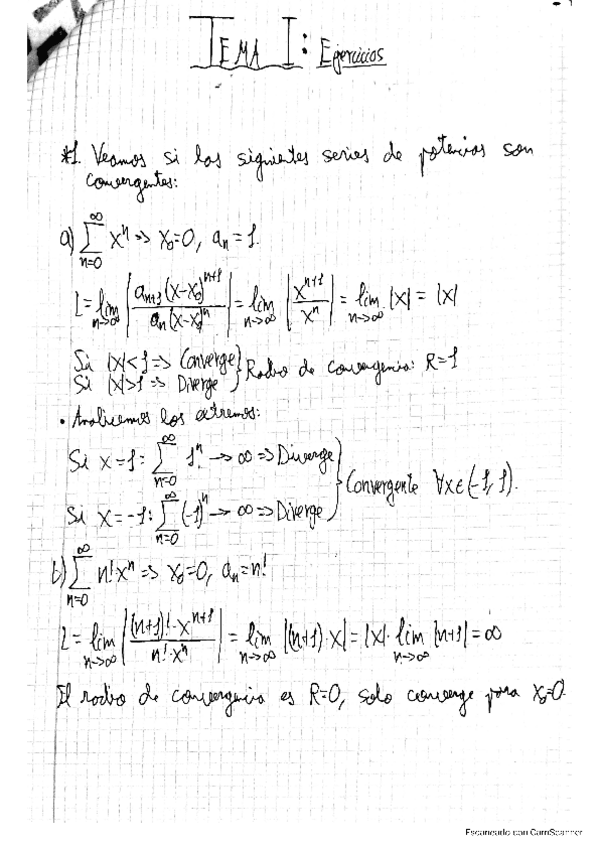 TEMA I: Ejercicios
*1. Veamos si las siguientes series de potencias son
convergentes:
a) ∑_{n=0}^{∞} xⁿ => x₀=0, aₙ=1.
L = lim_{n→∞} |a_{n+1}(x-x₀)^{n+1} / aₙ(x-x₀)ⁿ| = lim_{n→∞} |x^{n+1} / xⁿ| = lim_{n→∞} |x| = |x|
Si |x|<1 => Converge } Radio de convergencia: R=1
Si |x|>1 => Diverge
• Analicemos los extremos:
Si x=1: ∑_{n=0}^{∞} 1ⁿ → ∞ => Diverge } Convergente ∀x∈(-1,1).
Si x=-1: ∑_{n=0}^{∞} (-1)ⁿ → ∞ => Diverge
b) ∑_{n=0}^{∞} n!xⁿ => x₀=0, aₙ=n!
L = lim_{n→∞} |(n+1)!·x^{n+1} / n!·xⁿ| = lim_{n→∞} |(n+1)·x| = |x|·lim_{n→∞} |n+1| = ∞
El radio de convergencia es R=0, solo converge para x₀=0.
Escaneado con CamScanner